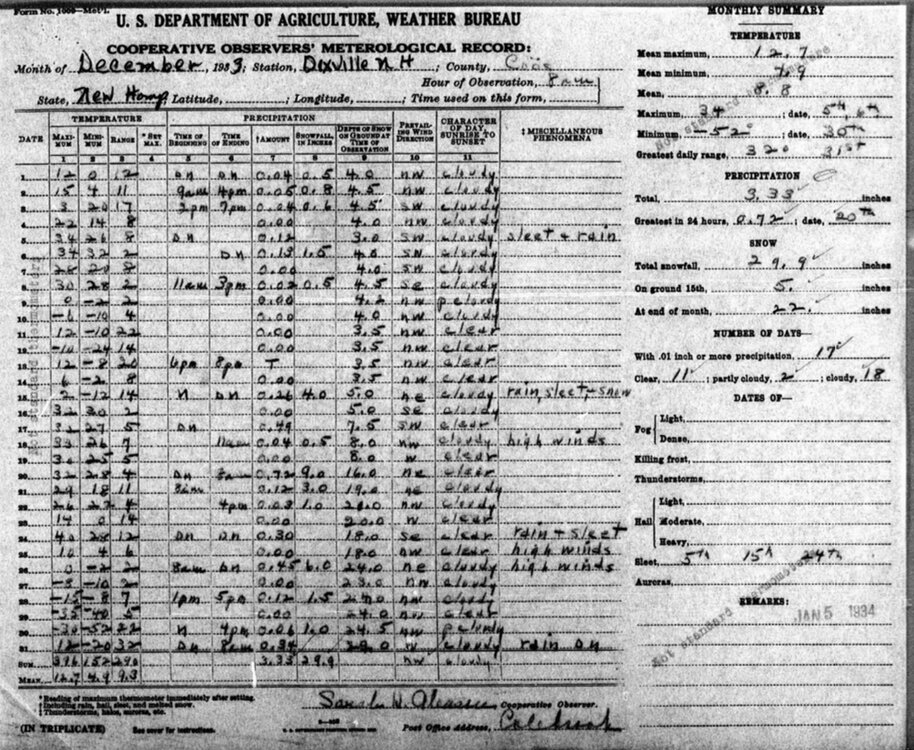 Form No. 1009—Met'l.
U. S. DEPARTMENT OF AGRICULTURE, WEATHER BUREAU
COOPERATIVE OBSERVERS' METEROLOGICAL RECORD:
Month of December, 1933; Station, Dixville N H; County, Coös
Hour of Observation, 8 am
State, New Hamp; Latitude, ; Longitude, ; Time used on this form,
TEMPERATURE PRECIPITATION
DATE MAXIMUM MINIMUM RANGE *SET MAX. TIME OF BEGINNING TIME OF ENDING †AMOUNT SNOWFALL, IN INCHES DEPTH OF SNOW ON GROUND AT TIME OF OBSERVATION PREVAILING WIND DIRECTION CHARACTER OF DAY, SUNRISE TO SUNSET ‡MISCELLANEOUS PHENOMENA
1 2 3 4 5 6 7 8 9 10 11
1 12 0 12 DN DN 0.04 0.5 4.0 nw cloudy
2 15 4 11 9am 4pm 0.05 0.8 4.5 nw cloudy
3 3 20 17 2pm 7pm 0.04 0.6 4.5 sw cloudy
4 22 14 8 0.00 4.0 nw cloudy
5 34 26 8 DN 0.12 3.0 sw cloudy sleet + rain
6 34 32 2 DN 0.13 1.5 4.0 sw cloudy
7 28 20 8 0.00 4.0 sw cloudy
8 30 28 2 11am 3pm 0.02 0.5 4.5 se cloudy
9 0 -2 2 0.00 4.2 nw p cloudy
10 -6 -10 4 0.00 4.0 nw cloudy
11 12 -10 22 0.00 3.5 nw clear
12 -10 -24 14 0.00 3.5 nw clear
13 12 -8 20 6pm 8pm T 3.5 nw clear
14 6 -2 8 0.00 3.5 nw clear
15 2 -12 14 N DN 0.26 4.0 5.0 ne cloudy rain, sleet, + snow
16 32 30 2 0.00 5.0 se cloudy
17 32 27 5 DN 0.49 7.5 sw clear
18 33 26 7 11am 0.04 0.5 8.0 nw cloudy high winds
19 30 25 5 0.00 8.0 w clear
20 32 28 4 DN 0.72 9.0 16.0 ne clear
21 29 18 11 8am 0.12 3.0 19.0 ne cloudy
22 26 22 4 4pm 0.03 1.0 20.0 nw cloudy
23 14 0 14 0.00 20.0 w clear
24 40 28 12 DN DN 0.30 18.0 se clear rain + sleet
25 10 4 6 0.00 18.0 nw clear high winds
26 0 -2 2 8am DN 0.45 6.0 24.0 ne cloudy high winds
27 -8 -10 2 0.00 23.0 nw cloudy
28 -15 -8 7 1pm 5pm 0.12 1.5 nw cloudy
29 -35 -40 5 0.00 24.0 nw clear
30 -30 -52 22 N 4pm 0.06 1.0 24.5 nw p cloudy
31 12 -20 32 DN 8am 0.34 w cloudy rain DN
SUM 396 152 290 3.33 29.9 nw cloudy
MEAN 12.7 4.9 9.3
* Reading of maximum thermometer immediately after setting.
† Including rain, hail, sleet, and melted snow.
‡ Thunderstorms, halos, auroras, etc.
Sarah H. Cooperative Observer.
(IN TRIPLICATE) See cover for instructions. Post Office Address, Colebrook
MONTHLY SUMMARY
TEMPERATURE
Mean maximum, 12.7
Mean minimum, 4.9
Mean, 8.8
Maximum, 34; date, 5th, 6th
Minimum, -52°; date, 30th
Greatest daily range, 32° 31st
PRECIPITATION
Total, 3.33 inches
Greatest in 24 hours, 0.72; date, 20th
SNOW
Total snowfall, 29.9 inches
On ground 15th, 5. inches
At end of month, 22. inches
NUMBER OF DAYS—
With .01 inch or more precipitation, 17
Clear, 11; partly cloudy, 2; cloudy, 18
DATES OF—
Fog Light,
Dense,
Killing frost,
Thunderstorms,
Hail Light,
Moderate,
Heavy,
Sleet, 5th 15th 24th
Auroras,
REMARKS:
JAN 5 1934
Not standard thermometer